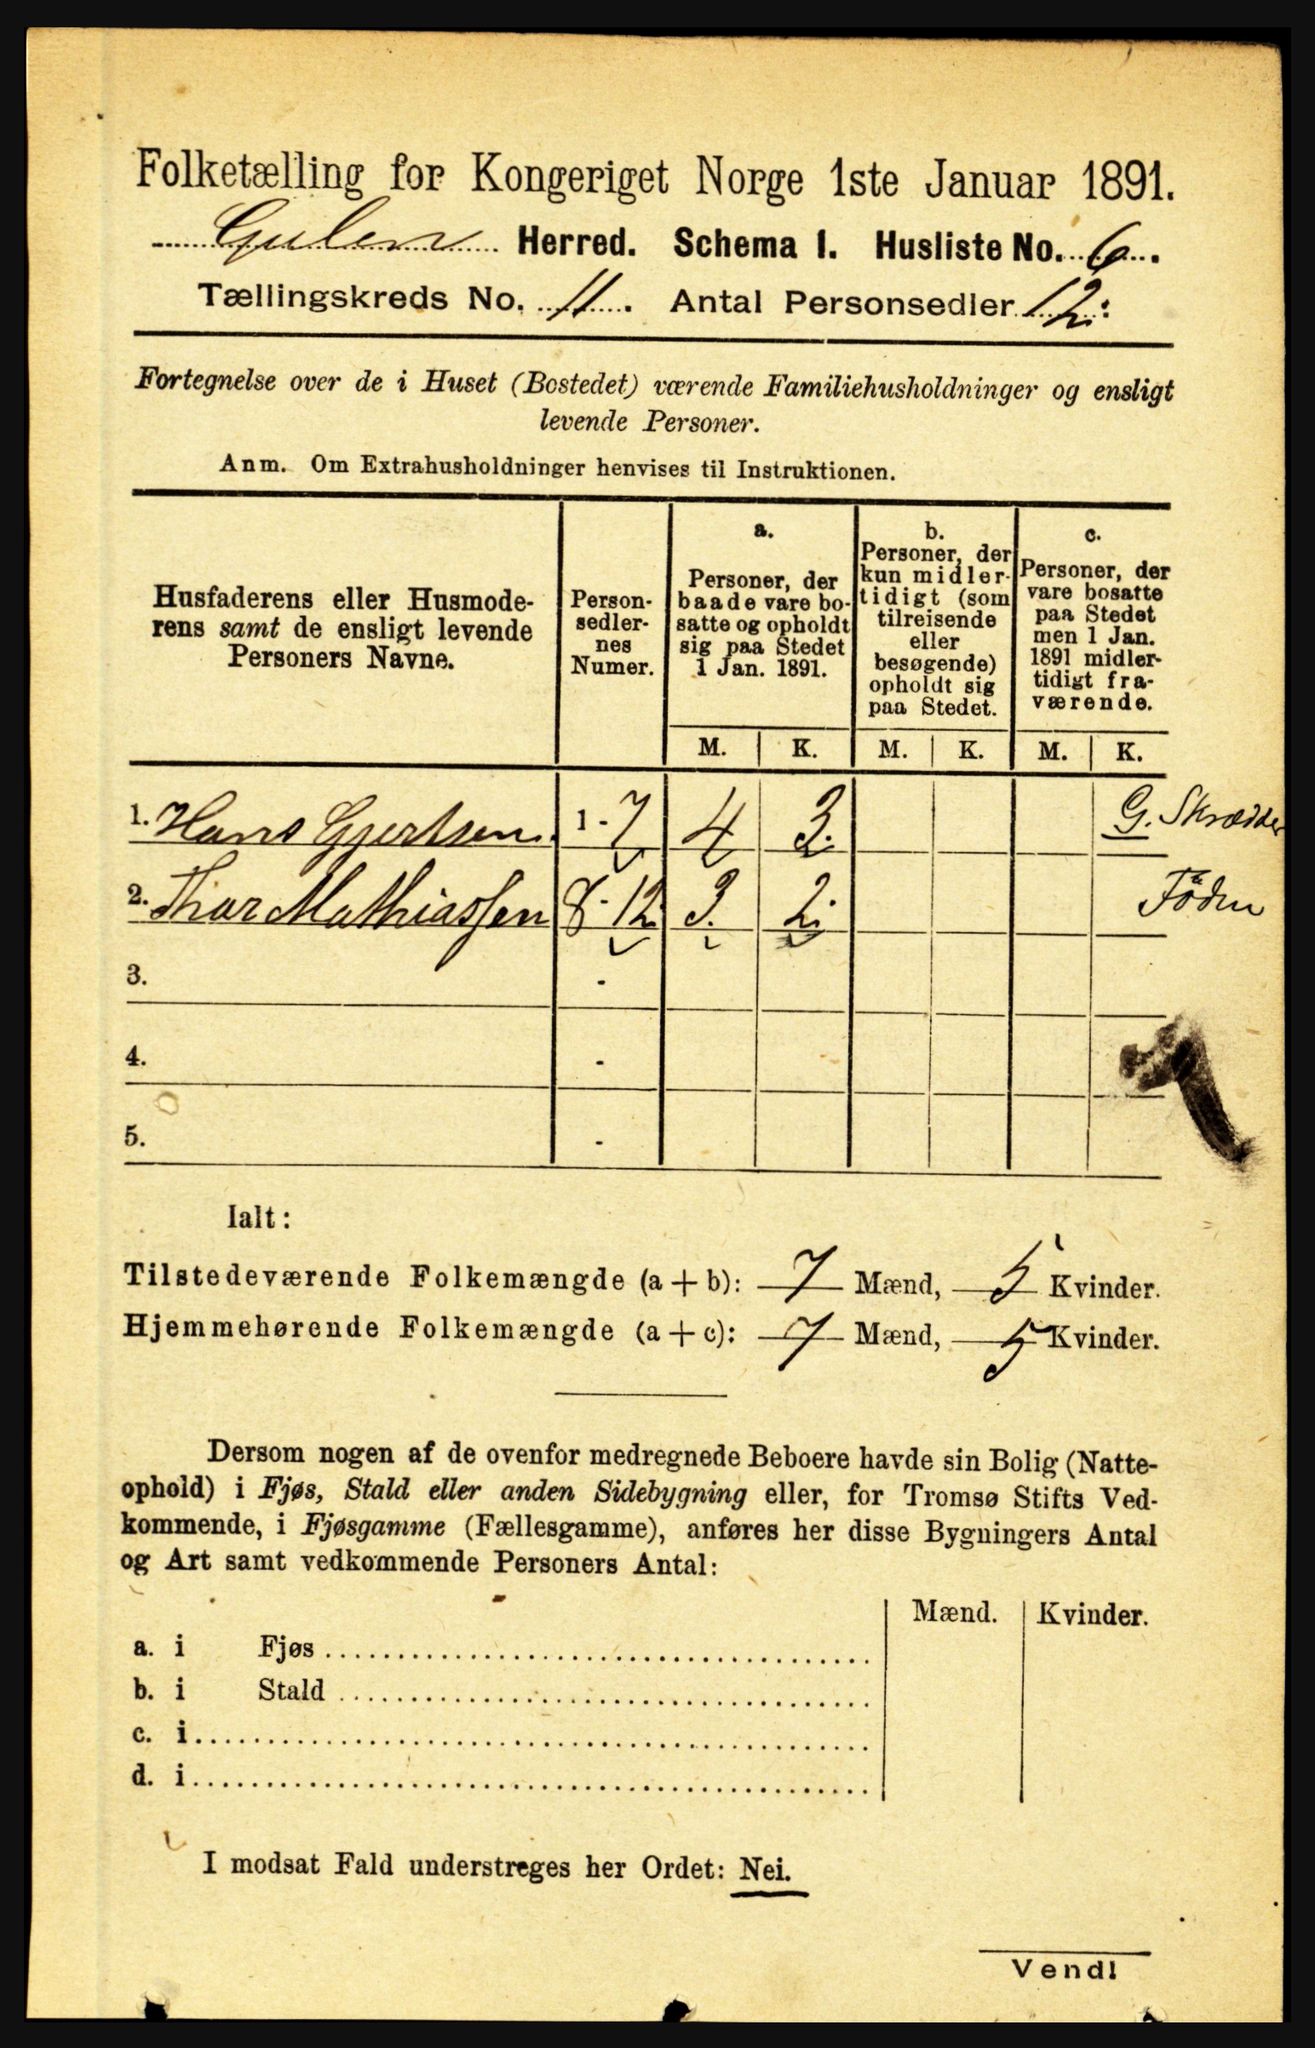 Folketælling for Kongeriget Norge 1ste Januar 1891.
Gulen Herred. Schema I. Husliste No. 6.
Tællingskreds No. 11. Antal Personsedler 12:
Fortegnelse over de i Huset (Bostedet) værende Familiehusholdninger og ensligt
levende Personer.
Anm. Om Extrahusholdninger henvises til Instruktionen.
Husfaderens eller Husmode-
rens samt de ensligt levende
Personers Navne.
Person-
sedler-
nes
Numer.
a.
Personer, der
baade vare bo-
satte og opholdt
sig paa Stedet
1 Jan. 1891.
b.
Personer, der
kun midler-
tidigt (som
tilreisende
eller
besøgende)
opholdt sig
paa Stedet.
c.
Personer, der
vare bosatte
paa Stedet
men 1 Jan.
1891 midler-
tidigt fra-
værende.
M. K. M. K. M. K.
1. Hans Gjertsen. 1 - 7 4 3. G. Skrædder
2. Thor Mathiassen 8 - 12 3. 2. Föder
3. -
4. -
5. -
Ialt:
Tilstedeværende Folkemængde (a + b): 7 Mænd, 5 Kvinder.
Hjemmehørende Folkemængde (a + c): 7 Mænd, 5 Kvinder.
Dersom nogen af de ovenfor medregnede Beboere havde sin Bolig (Natte-
ophold) i Fjøs, Stald eller anden Sidebygning eller, for Tromsø Stifts Ved-
kommende, i Fjøsgamme (Fællesgamme), anføres her disse Bygningers Antal
og Art samt vedkommende Personers Antal:
Mænd. Kvinder.
a. i Fjøs
b. i Stald
c. i
d. i
I modsat Fald understreges her Ordet: Nei.
Vendl